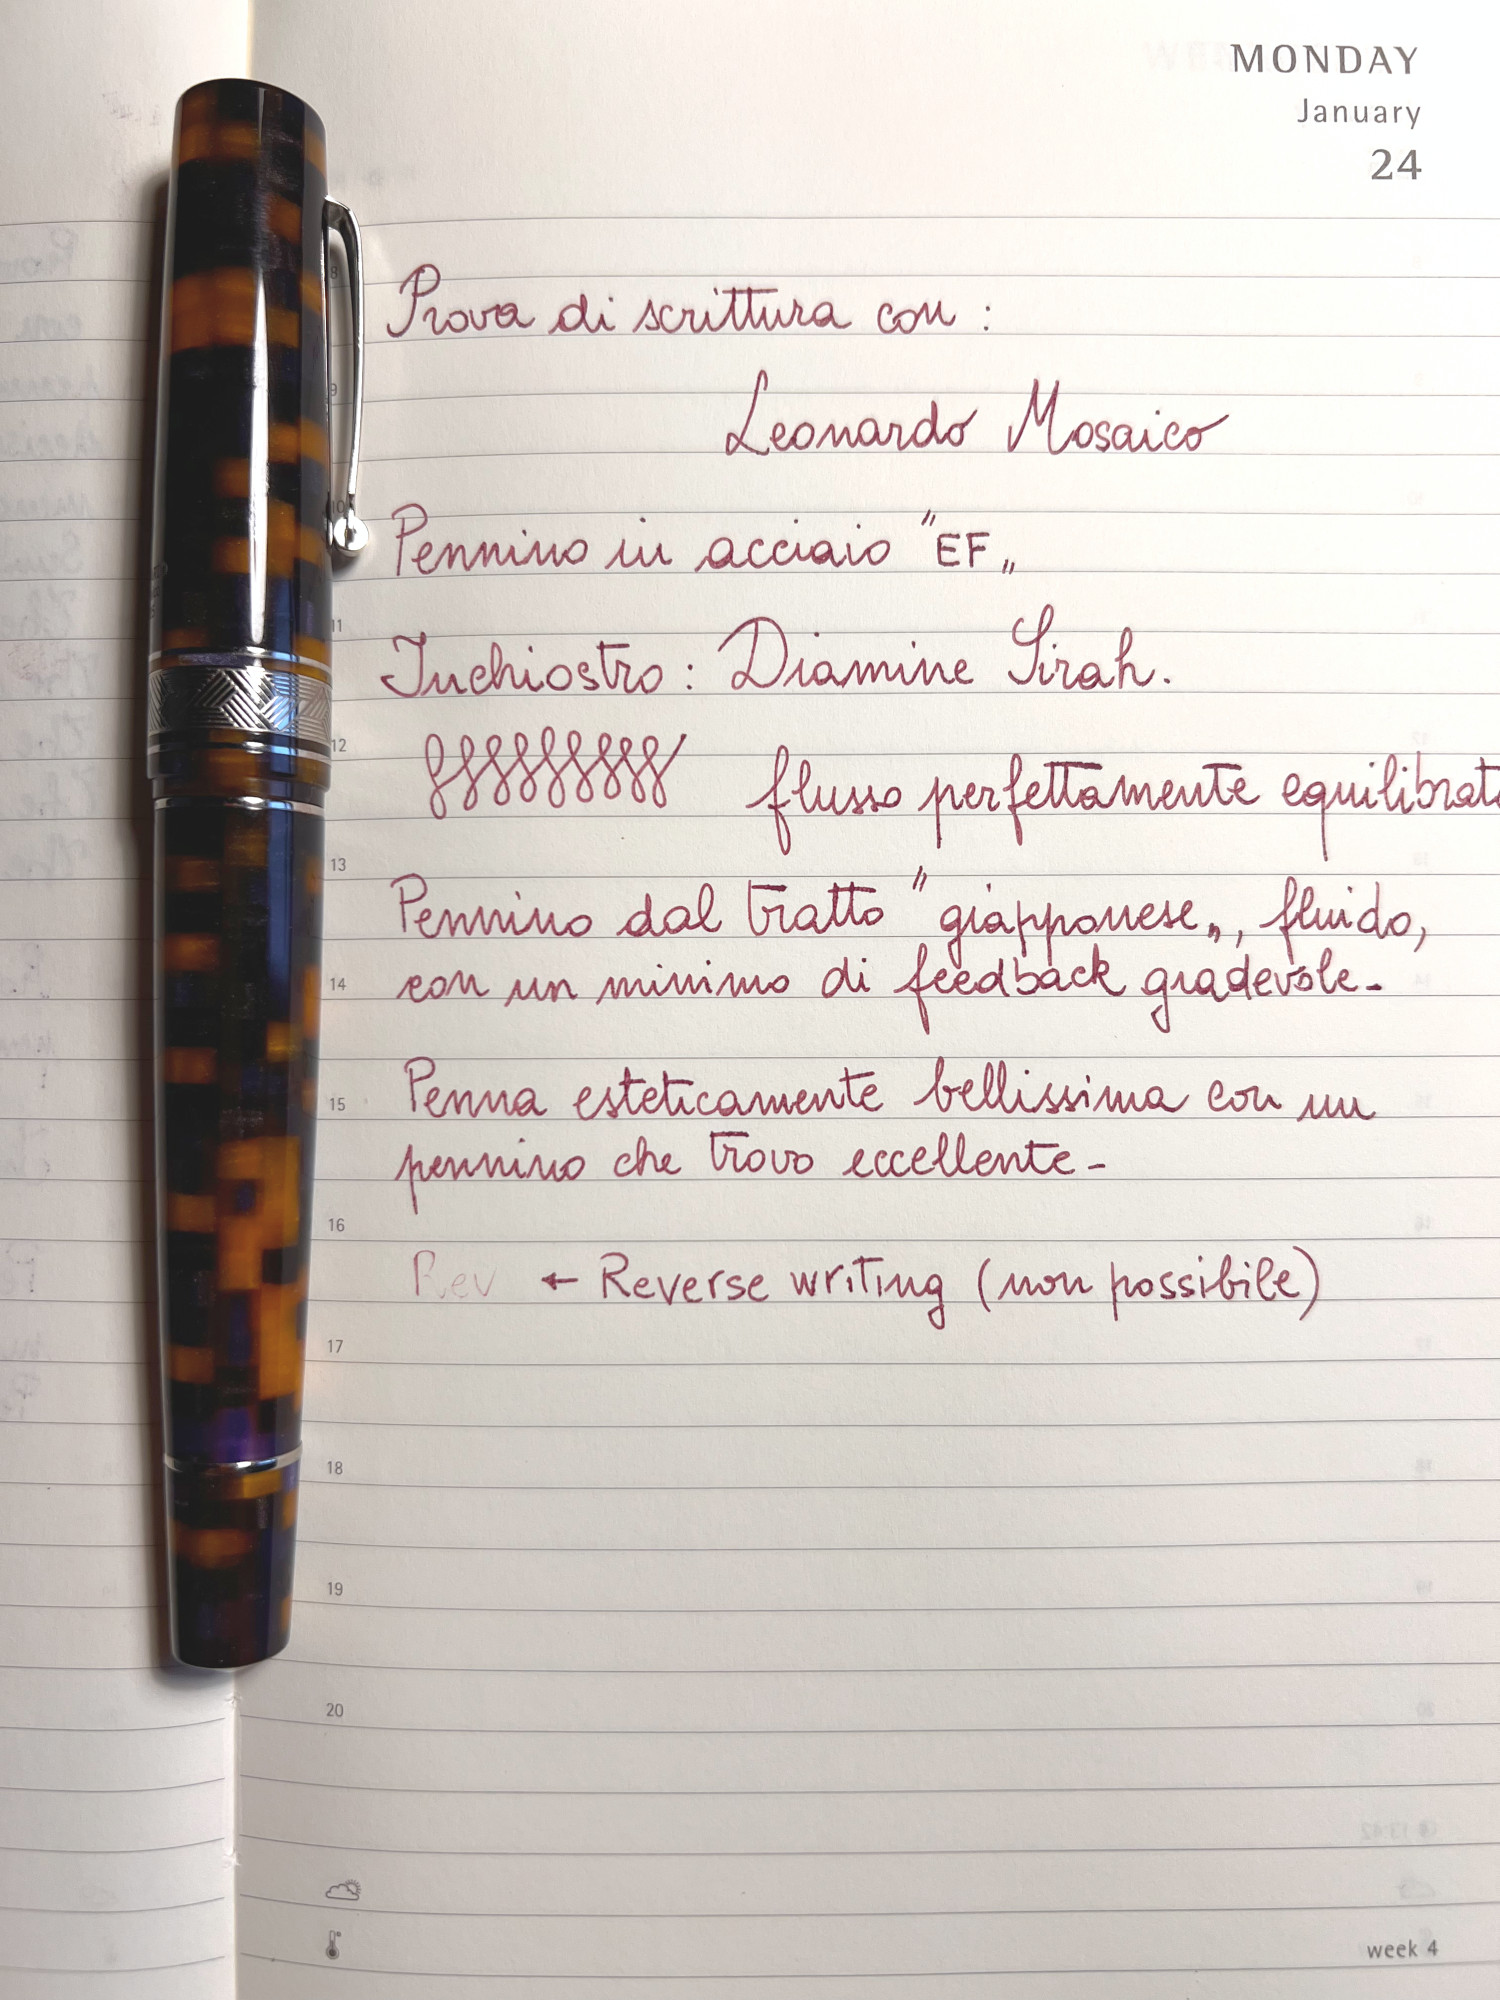 MONDAY
January
24
8
Prova di scrittura con :
9
Leonardo Mosaico
10
Pennino in acciaio "EF„
11
Inchiostro : Diamine Sirah.
12
flusso perfettamente equilibrato
13
Pennino dal tratto "giapponese„, fluido,
14
con un minimo di feedback gradevole-
15
Penna esteticamente bellissima con un
pennino che trovo eccellente-
16
Rev ← Reverse writing (non possibile)
17
18
19
20
week 4